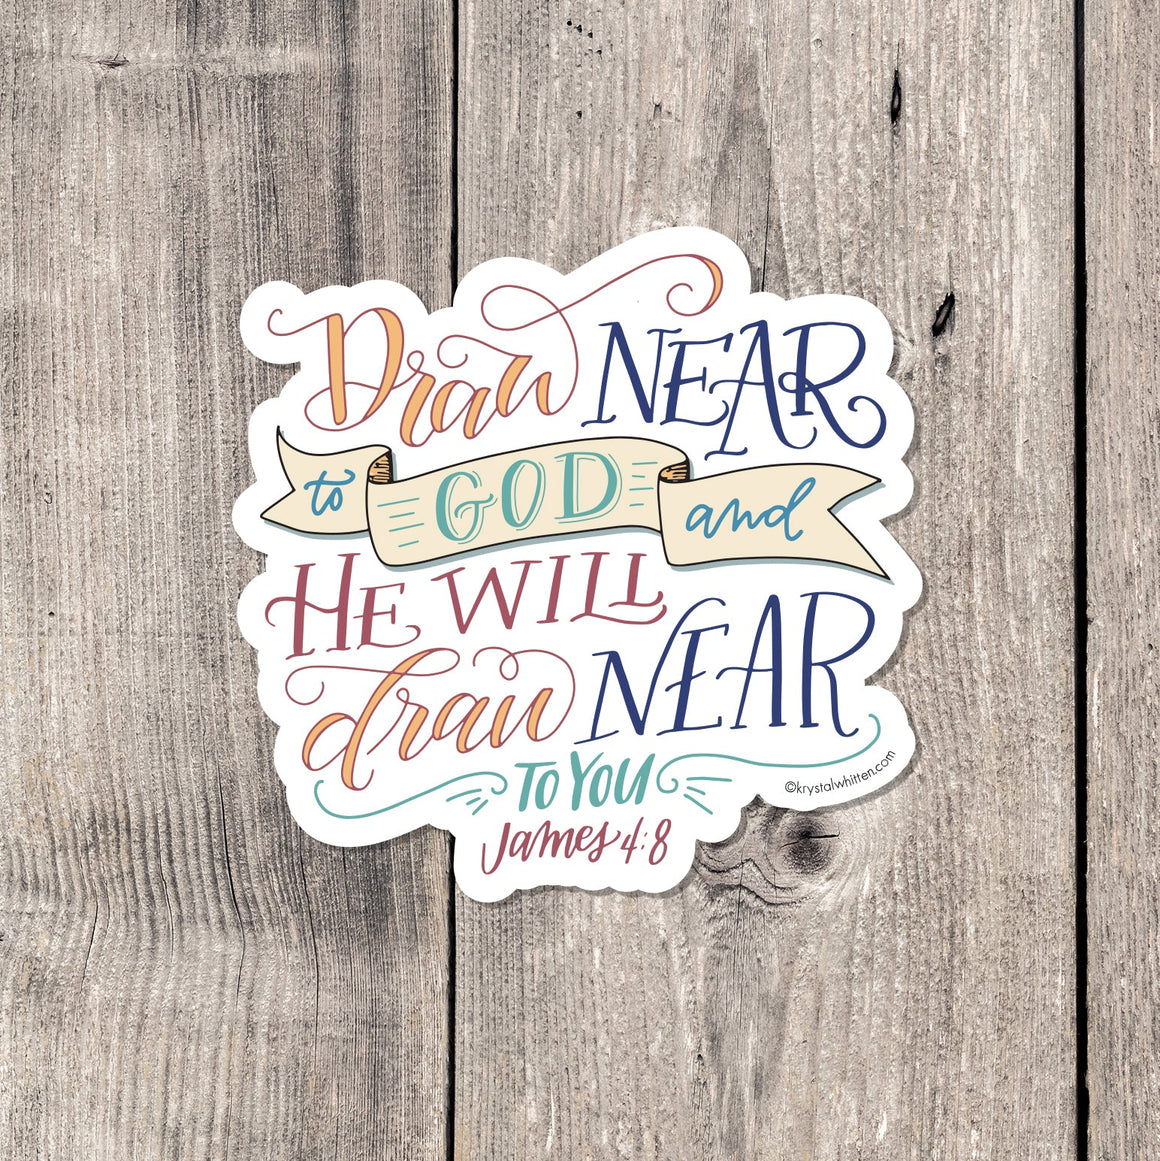 Draw NEAR
to GOD and
HE WILL
draw NEAR
TO YOU
James 4:8
©krystalwhitten.com